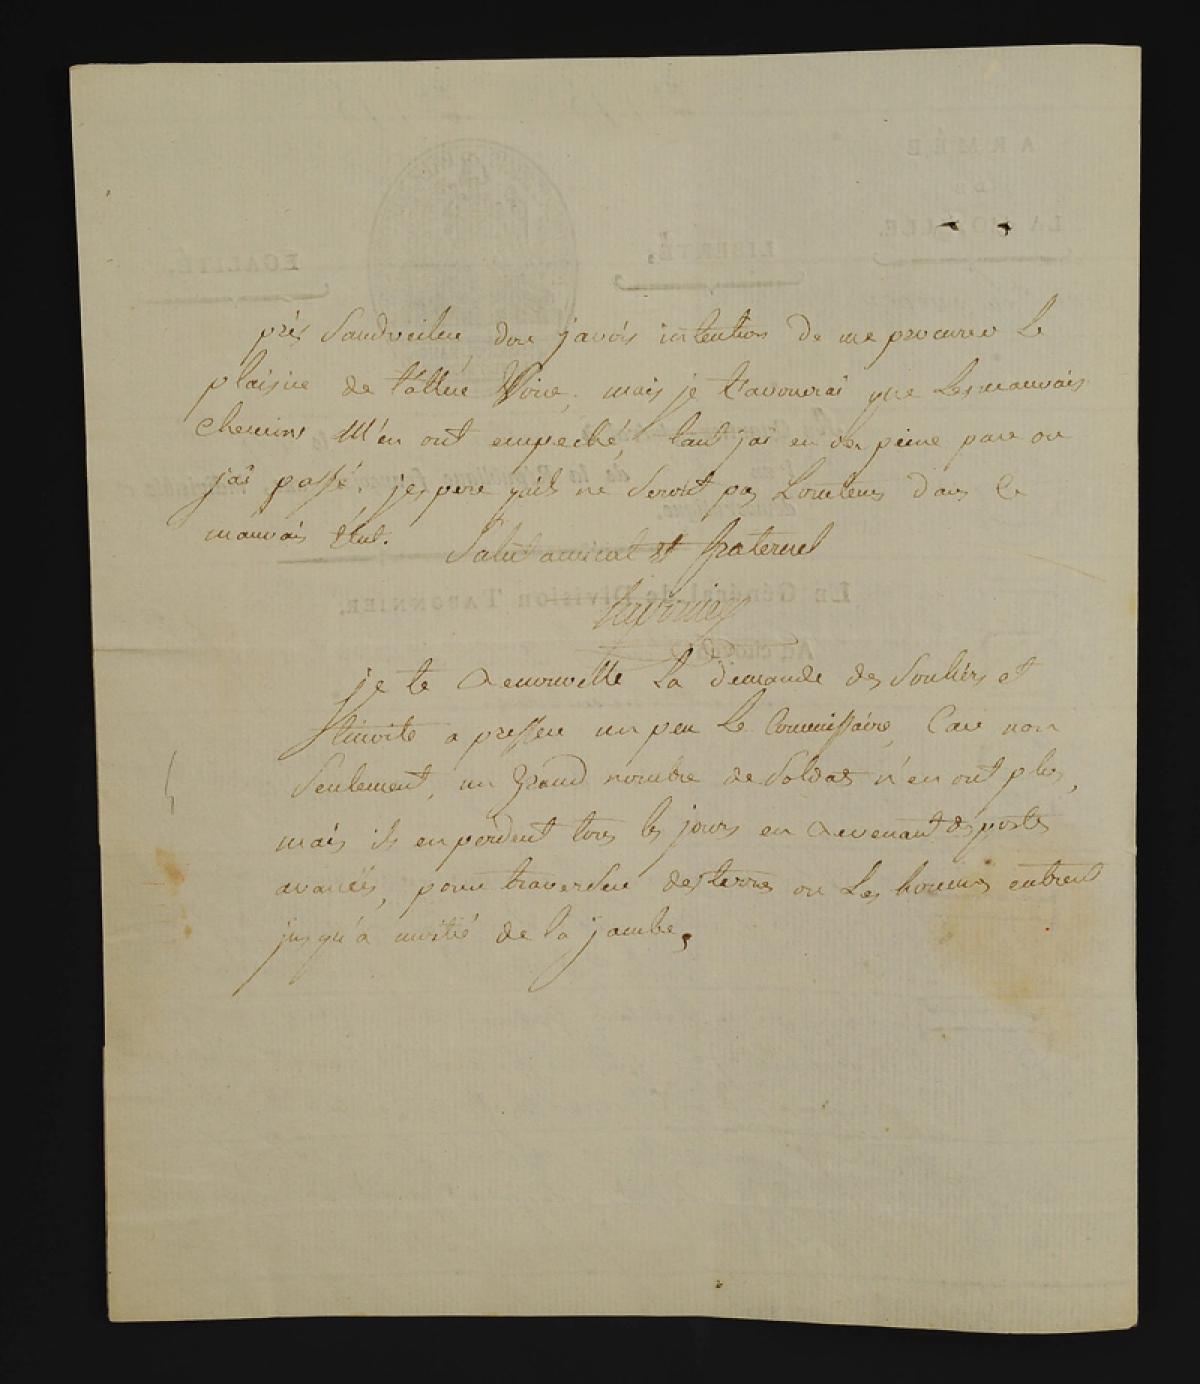 près Sandveiler, dou j'avois intention de me procurer le
plaisire de t'aller Voire, mais je t'avouerai que les mauvais
chemins M'en ont empeché, tant jai eu de peine par ou
j'ai passé. j'espere quils ne seront pas Lontems dans ce
mauvais état.
Salut amical et fraternel
je te renouvelle la demande des Souliers et
t'invite a presser un peu le Commissaire, Car non
Seulement, un grand nombre de Soldats n'en ont plus,
mais ils en perdent tous les jours en revenant des postes
avancés, pour traverser des terres ou les hommes entrent
jusqu'a moitié de la jambe.
ARMÉE
DE
LA MOSELLE.
LIBERTÉ,
ÉGALITÉ.
Le Général de Division TAPONNIER,